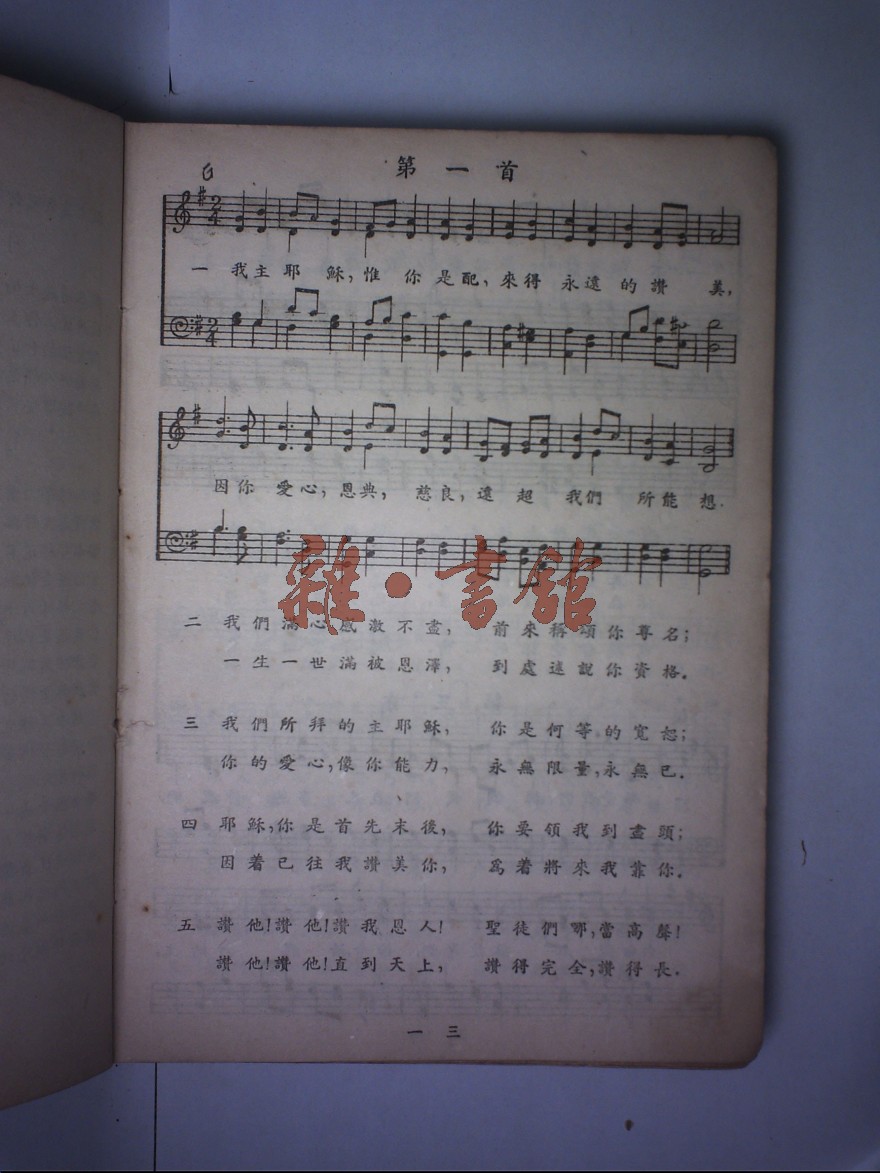 第一首
G
2 4
一 我主耶穌,惟你是配,來得永遠的讚美,
2 4
因你愛心,恩典,慈良,遠超我們所能想.
雜·書館
二 我們滿心感激不盡, 前來稱頌你尊名;
一生一世滿被恩澤, 到處述說你資格.
三 我們所拜的主耶穌, 你是何等的寬恕;
你的愛心,像你能力, 永無限量,永無已.
四 耶穌,你是首先末後, 你要領我到盡頭;
因着已往我讚美你, 爲着將來我靠你.
五 讚他!讚他!讚我恩人! 聖徒們哪,當高聲!
讚他!讚他!直到天上, 讚得完全,讚得長.
一三